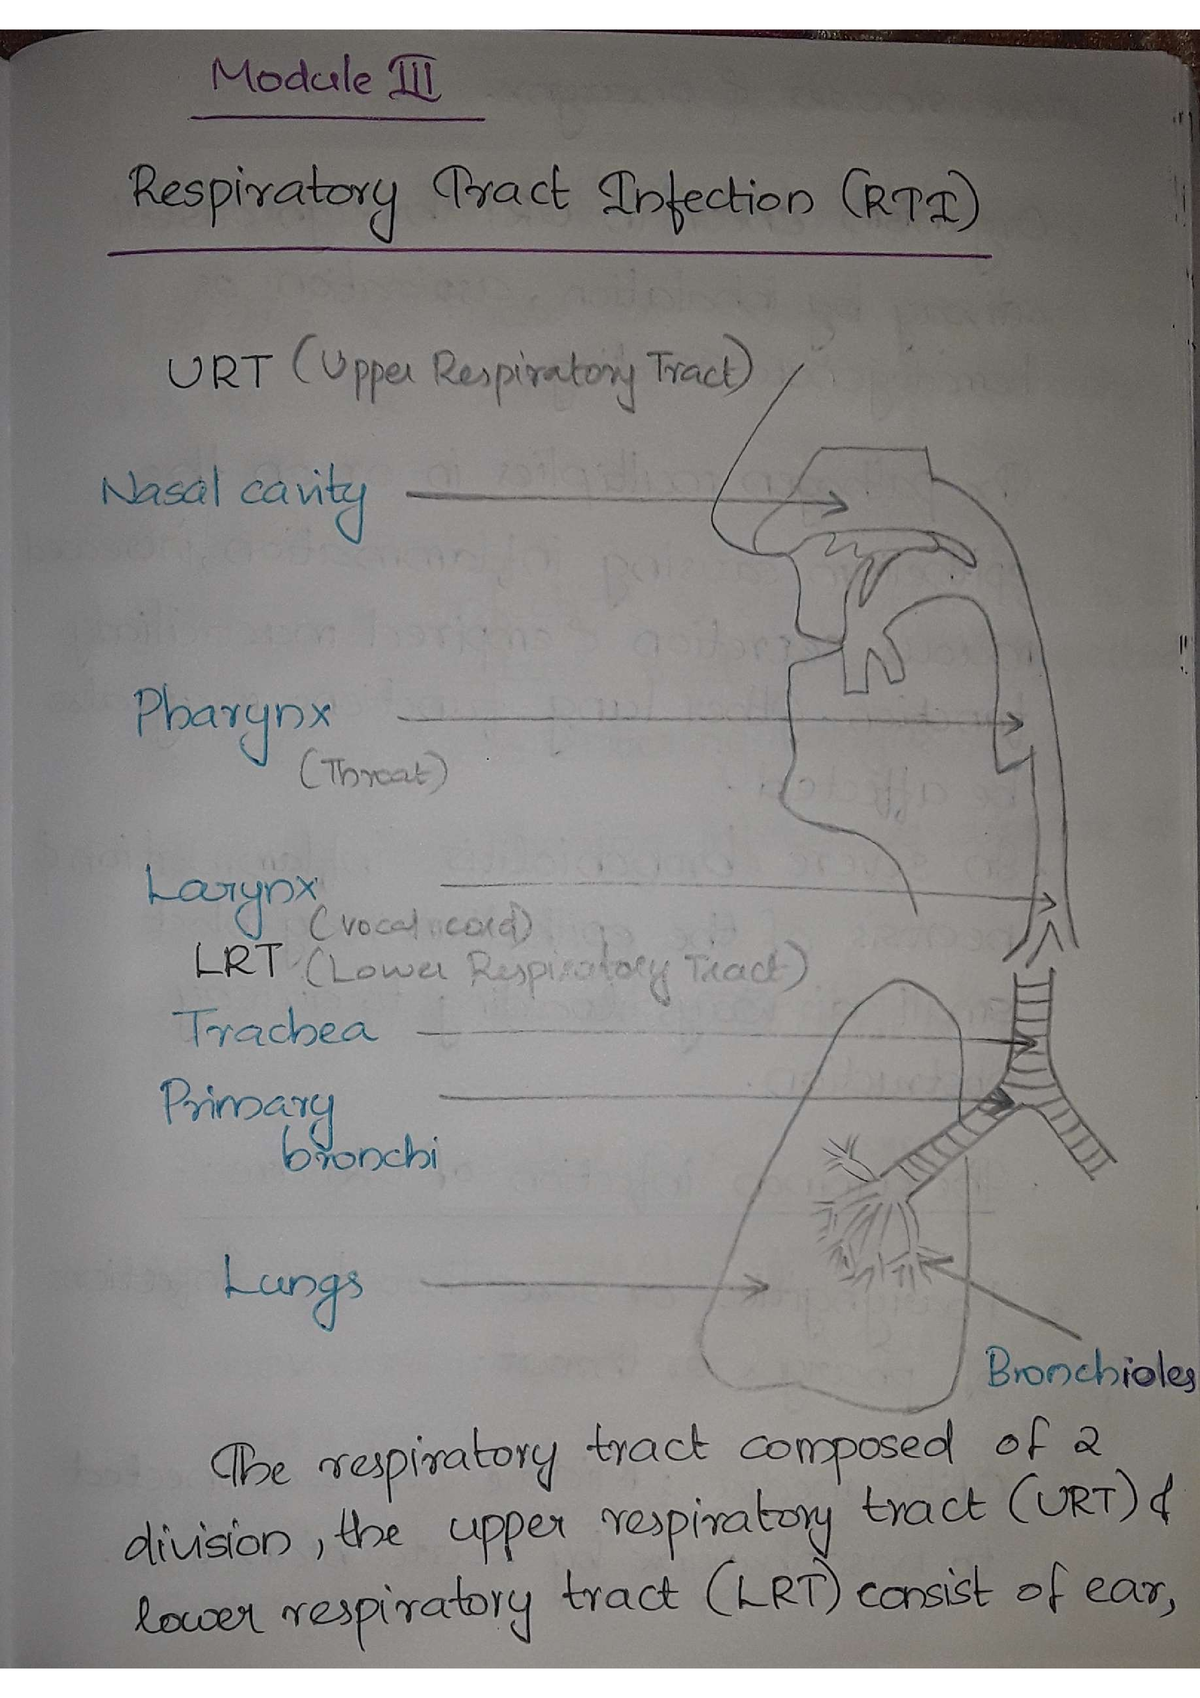 Module III
Respiratory Tract Infection (RTI)
URT (Upper Respiratory Tract)
Nasal cavity
Pharynx
(Throat)
Larynx
(vocal cord)
LRT (Lower Respiratory Tract)
Trachea
Primary
bronchi
Lungs
Bronchioles
The respiratory tract composed of 2
division, the upper respiratory tract (URT) &
lower respiratory tract (LRT) consist of ear,